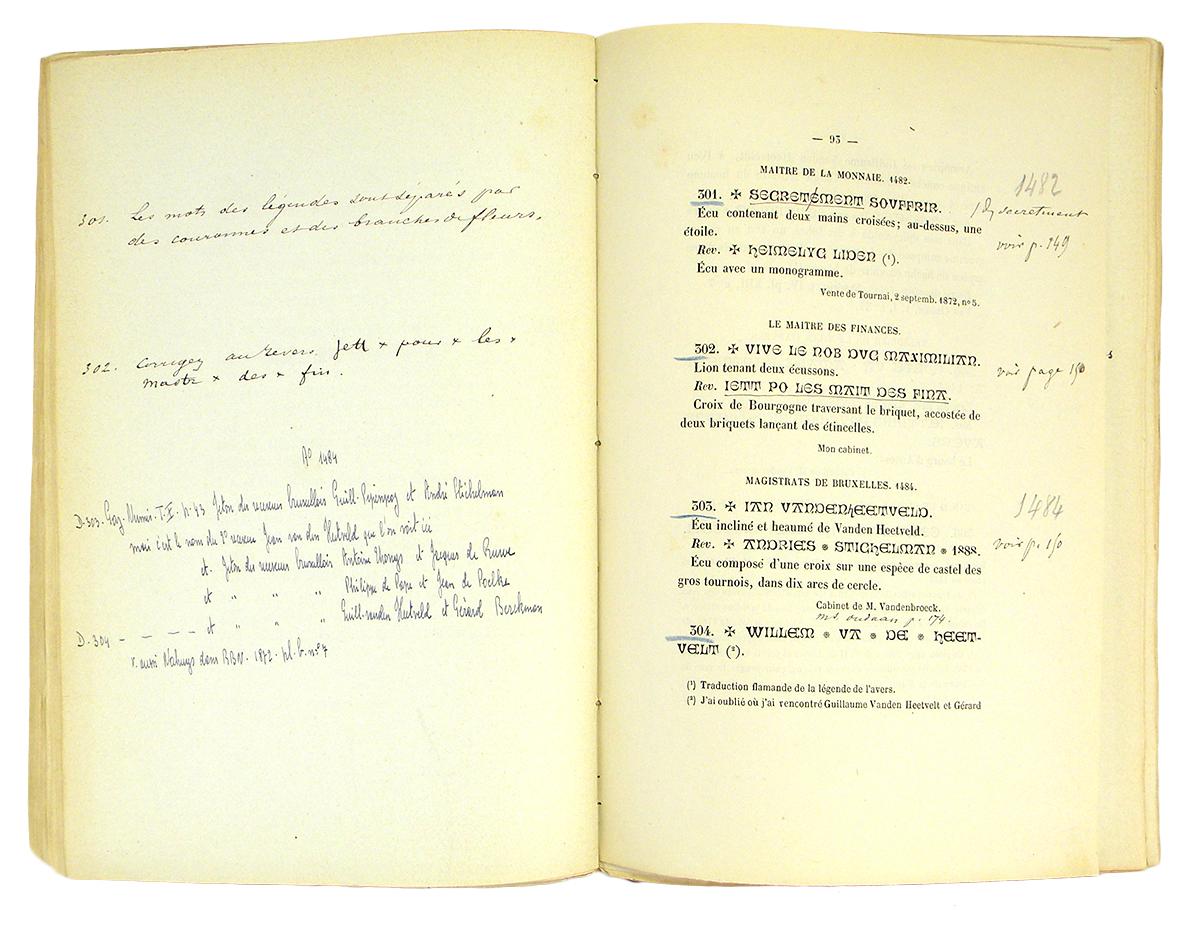 301. Les mots des légendes sont séparés par
des couronnes et des branches de fleurs.
302. Corrigez au revers. Jett × pour × les ×
Mastr × des × fin.
A° 1484
D-303 - Gaz. Numis. T. I. p. 43 Jeton des receveurs bruxellois Guill. et André Stichelman
mais c'est le nom du 2e receveur Jean van den Heetveld que l'on voit ici
et Jeton des receveurs bruxellois Antoine Thonys et Jacques de
et " " " Philippe de Pape et Jean de Poelke
D-304 - - - - et " " " Guill. vanden Heetveld et Gérard Berckman
v. aussi Nahuys dans RBN. 1872. pl. b. n° 7
— 93 —
MAITRE DE LA MONNAIE. 1482.
1482
301. ✠ SECRETÉMENT SOUFFRIR.
/ Dy secretment
Écu contenant deux mains croisées; au-dessus, une
étoile.
voir p. 149
Rev. ✠ HEIMELYC LIDEN (¹).
Écu avec un monogramme.
Vente de Tournai, 2 septemb. 1872, n° 5.
LE MAITRE DES FINANCES.
302. ✠ VIVE LE NOB DVC MAXIMILIAN.
Lion tenant deux écussons.
voir page 150
Rev. IETT PO LES MAIT DES FINA.
Croix de Bourgogne traversant le briquet, accostée de
deux briquets lançant des étincelles.
Mon cabinet.
MAGISTRATS DE BRUXELLES. 1484.
1484
303. ✠ IAN VANDENHEETVELD.
Écu incliné et heaumé de Vanden Heetveld.
Rev. ✠ ANDRIES ※ STICHELMAN ※ 1888.
voir p. 150
Écu composé d'une croix sur une espèce de castel des
gros tournois, dans dix arcs de cercle.
Cabinet de M. Vandenbroeck.
ms. oudaan p. 174.
304. ✠ WILLEM ※ VA ※ DE ※ HEET-
VELT (²).
(¹) Traduction flamande de la légende de l'avers.
(²) J'ai oublié où j'ai rencontré Guillaume Vanden Heetvelt et Gérard